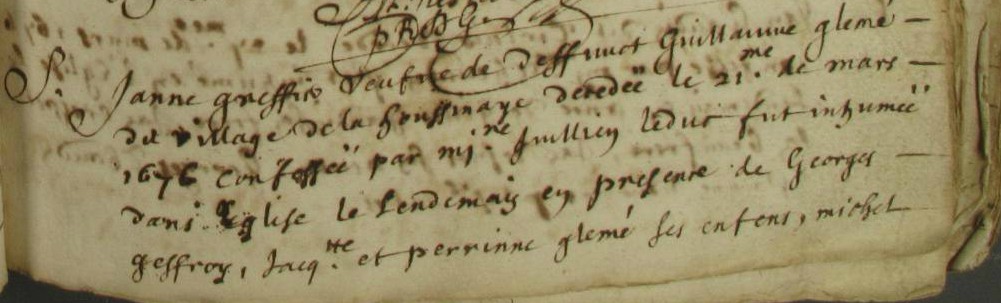 S. Janne greffier veufve de deffunct Guillaume glemé —
du village de la houssinaye decedeë le 21.me de mars —
1676 Confesseë par mi.re Jullien leduc fut inhumeë
dans l'Eglise le Lendemain en presence de Georges —
geffroy, Jacq.tte et perrinne glemé ses enfens, michel